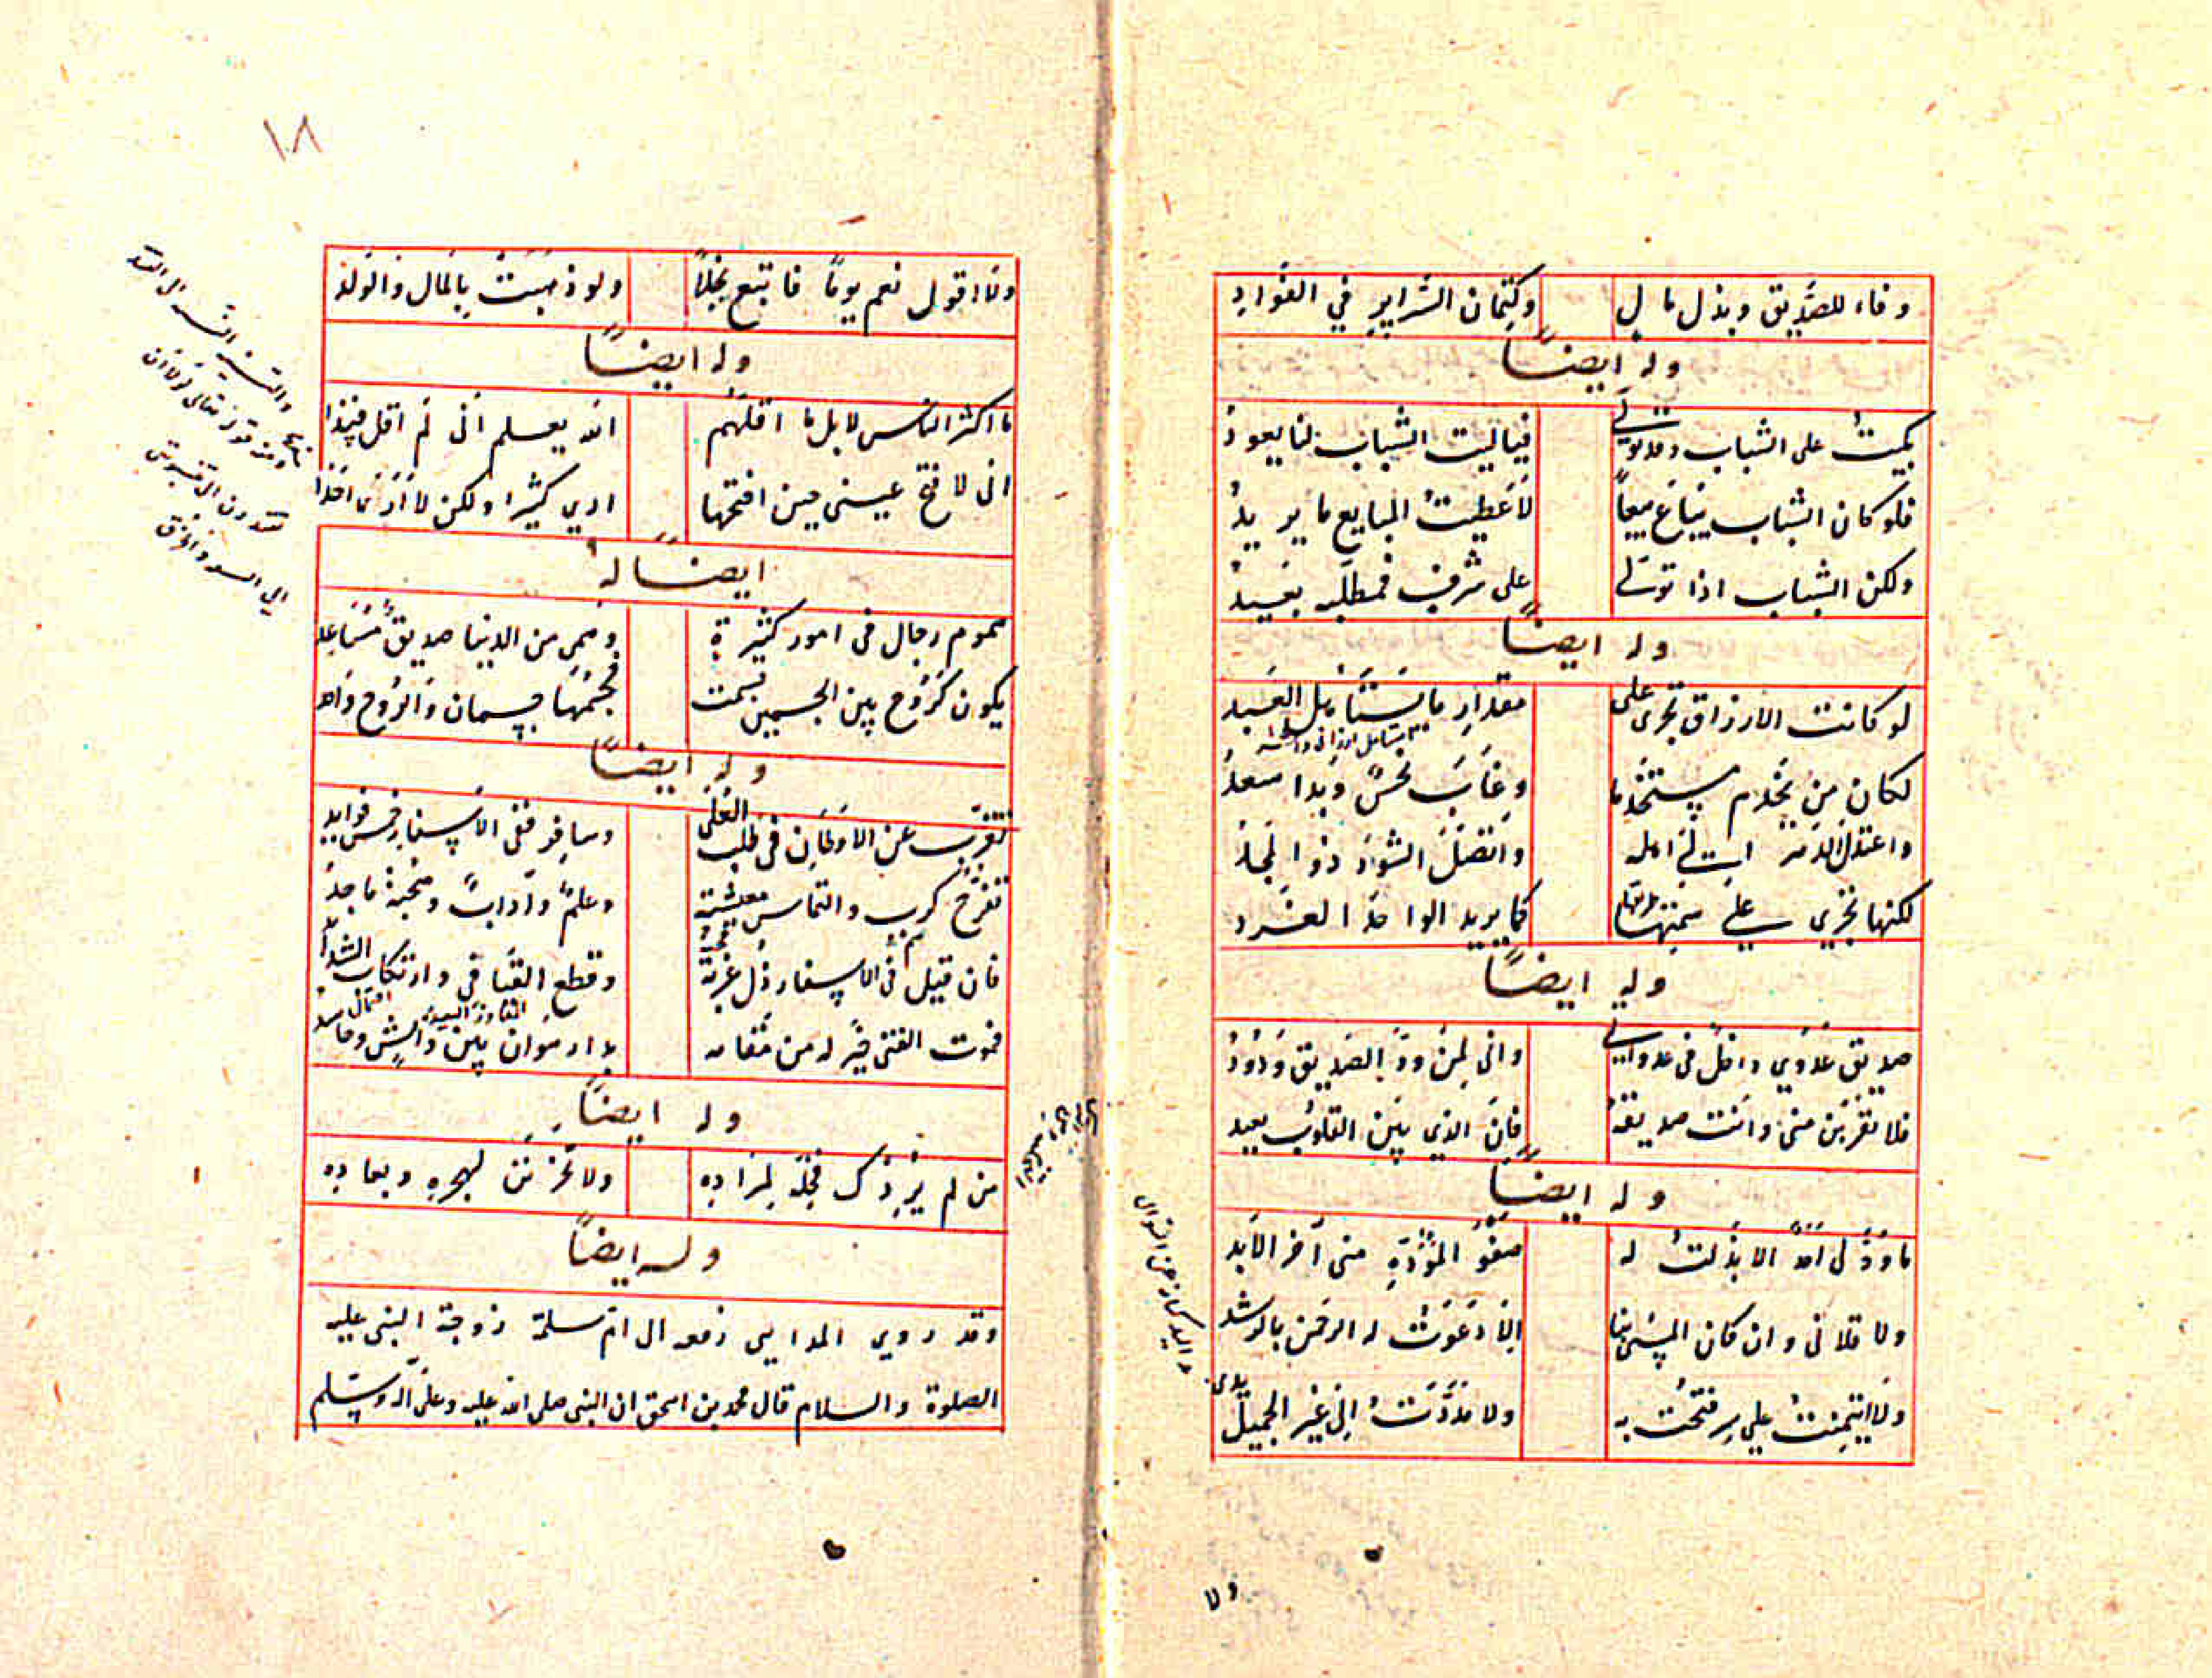 وفاء للصديق وبذل مال وكتمان السراير في الفؤاد
وله ايضاً
بكيت على الشباب وقد تولى فياليت الشباب لنا يعود
فلو كان الشباب يباع بيعاً لاعطيت المبايع ما يريد
ولكن الشباب اذا تولى على شرف فمطلبه بعيد
وله ايضاً
لو كانت الارزاق تجرى على مقدار ما يستاهل العبد
لكان من يخدم مستخدما وغاب نحس وبدا سعد
واعتدل الدهر الى اهله واتصل السودد والمجد
لكنها تجري على سمتها كما يريد الواحد الفرد
وله ايضاً
صديق عدوي داخل فى عداوتي وانى لمن ود الصديق ودود
فلا تقربن منى وانت صديقه فان الذي بين القلوب بعيد
وله ايضاً
ما ودنى احد الا بذلت له صفو المودة منى آخر الابد
ولا قلانى وان كان المسئ بنا الا دعوت له الرحمن بالرشد
ولا ائتمنت على سر فبحت به ولا مددت الى غير الجميل يدى
ولا
١٨
ولا اقول نعم يوماً فاتبع بخلاً ولو ذهبت بالمال والولد
وله ايضاً
ما اكثر الناس لا بل ما اقلهم الله يعلم انى لم اقل فندا
انى لافتح عينى حين افتحها اري كثيرا ولكن لا اري احدا
ايضاً له
هموم رجال فى امور كثيرة وهمى من الدنيا صديق مساعد
يكون كروح بين الجسمين قسمت فجسمهما جسمان والروح واحد
وله ايضاً
تغرب عن الاوطان فى طلب العلى وسافر ففى الاسفار خمس فوايد
تفرج كرب والتماس معيشة وعلم وآداب وصحبة ماجد
فان قيل فى الاسفار ذل وغربة وقطع الفيافى وارتكاب الشدايد
فموت الفتى خير له من مقامه بدار هوان بين واش وحاسد
وله ايضاً
من لم يردك فخله لمراده ولا تحزنن لهجره وبعاده
وله ايضاً
وقد روي المدايني رفعه الى ام سلمة زوجة النبى عليه
الصلوة والسلام قال محمد بن اسحق ان النبى صلى الله عليه وعلى آله وسلم